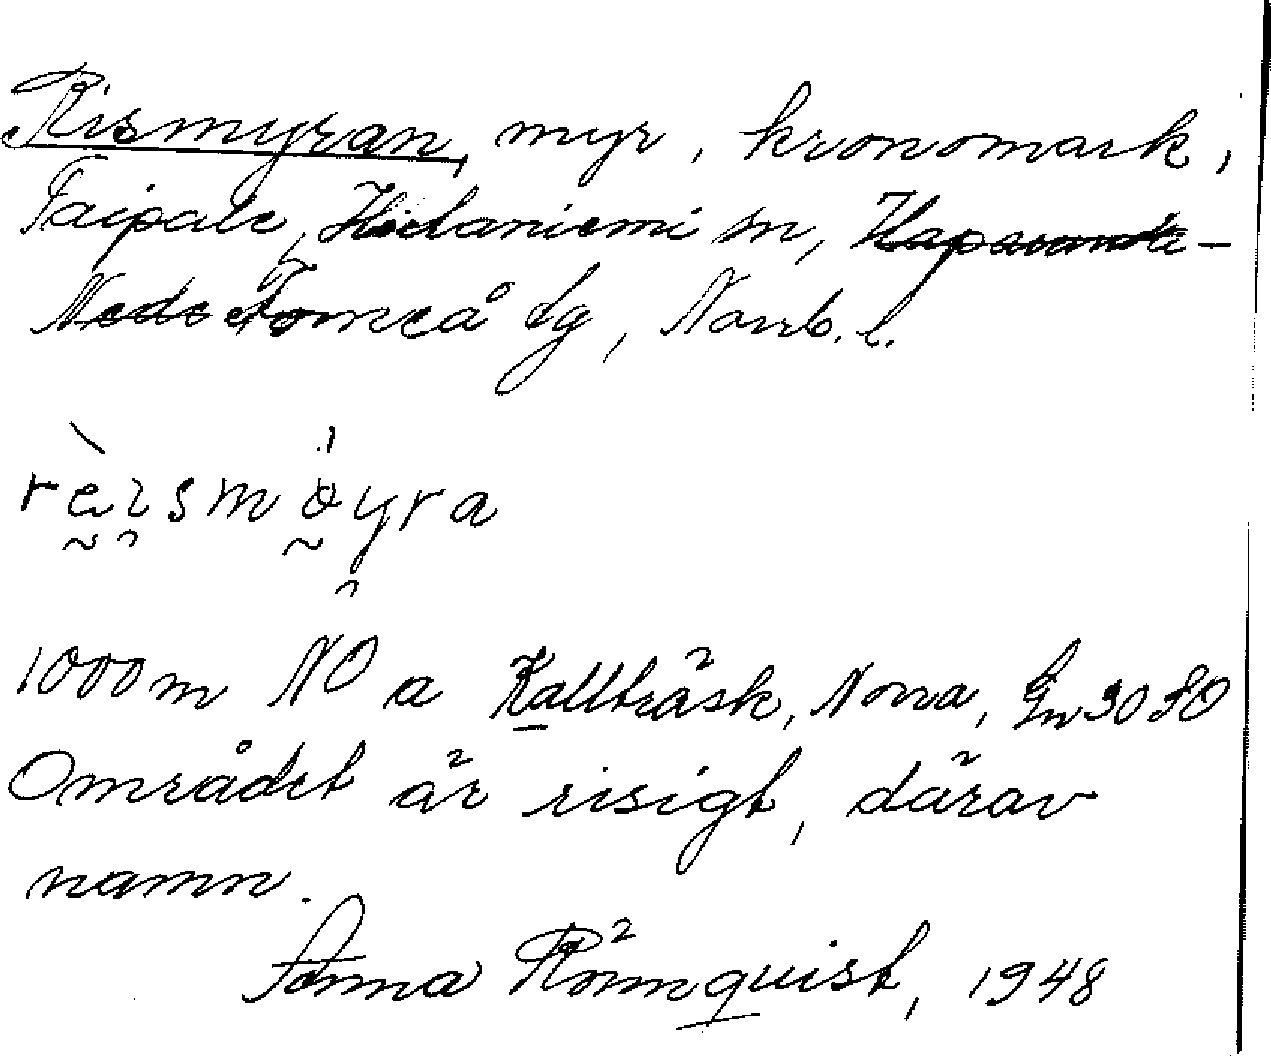 Rismyran, myr, kronomark,
Taipale, Hietaniemi sn, Haparanda-
Torneå tg, Norrb. l.
rèɩsmöyra
1000 m NO a Kallträsk, Norra, Gw 30 SO
Området är risigt, därav
namn.
Anna Rönnquist, 1948